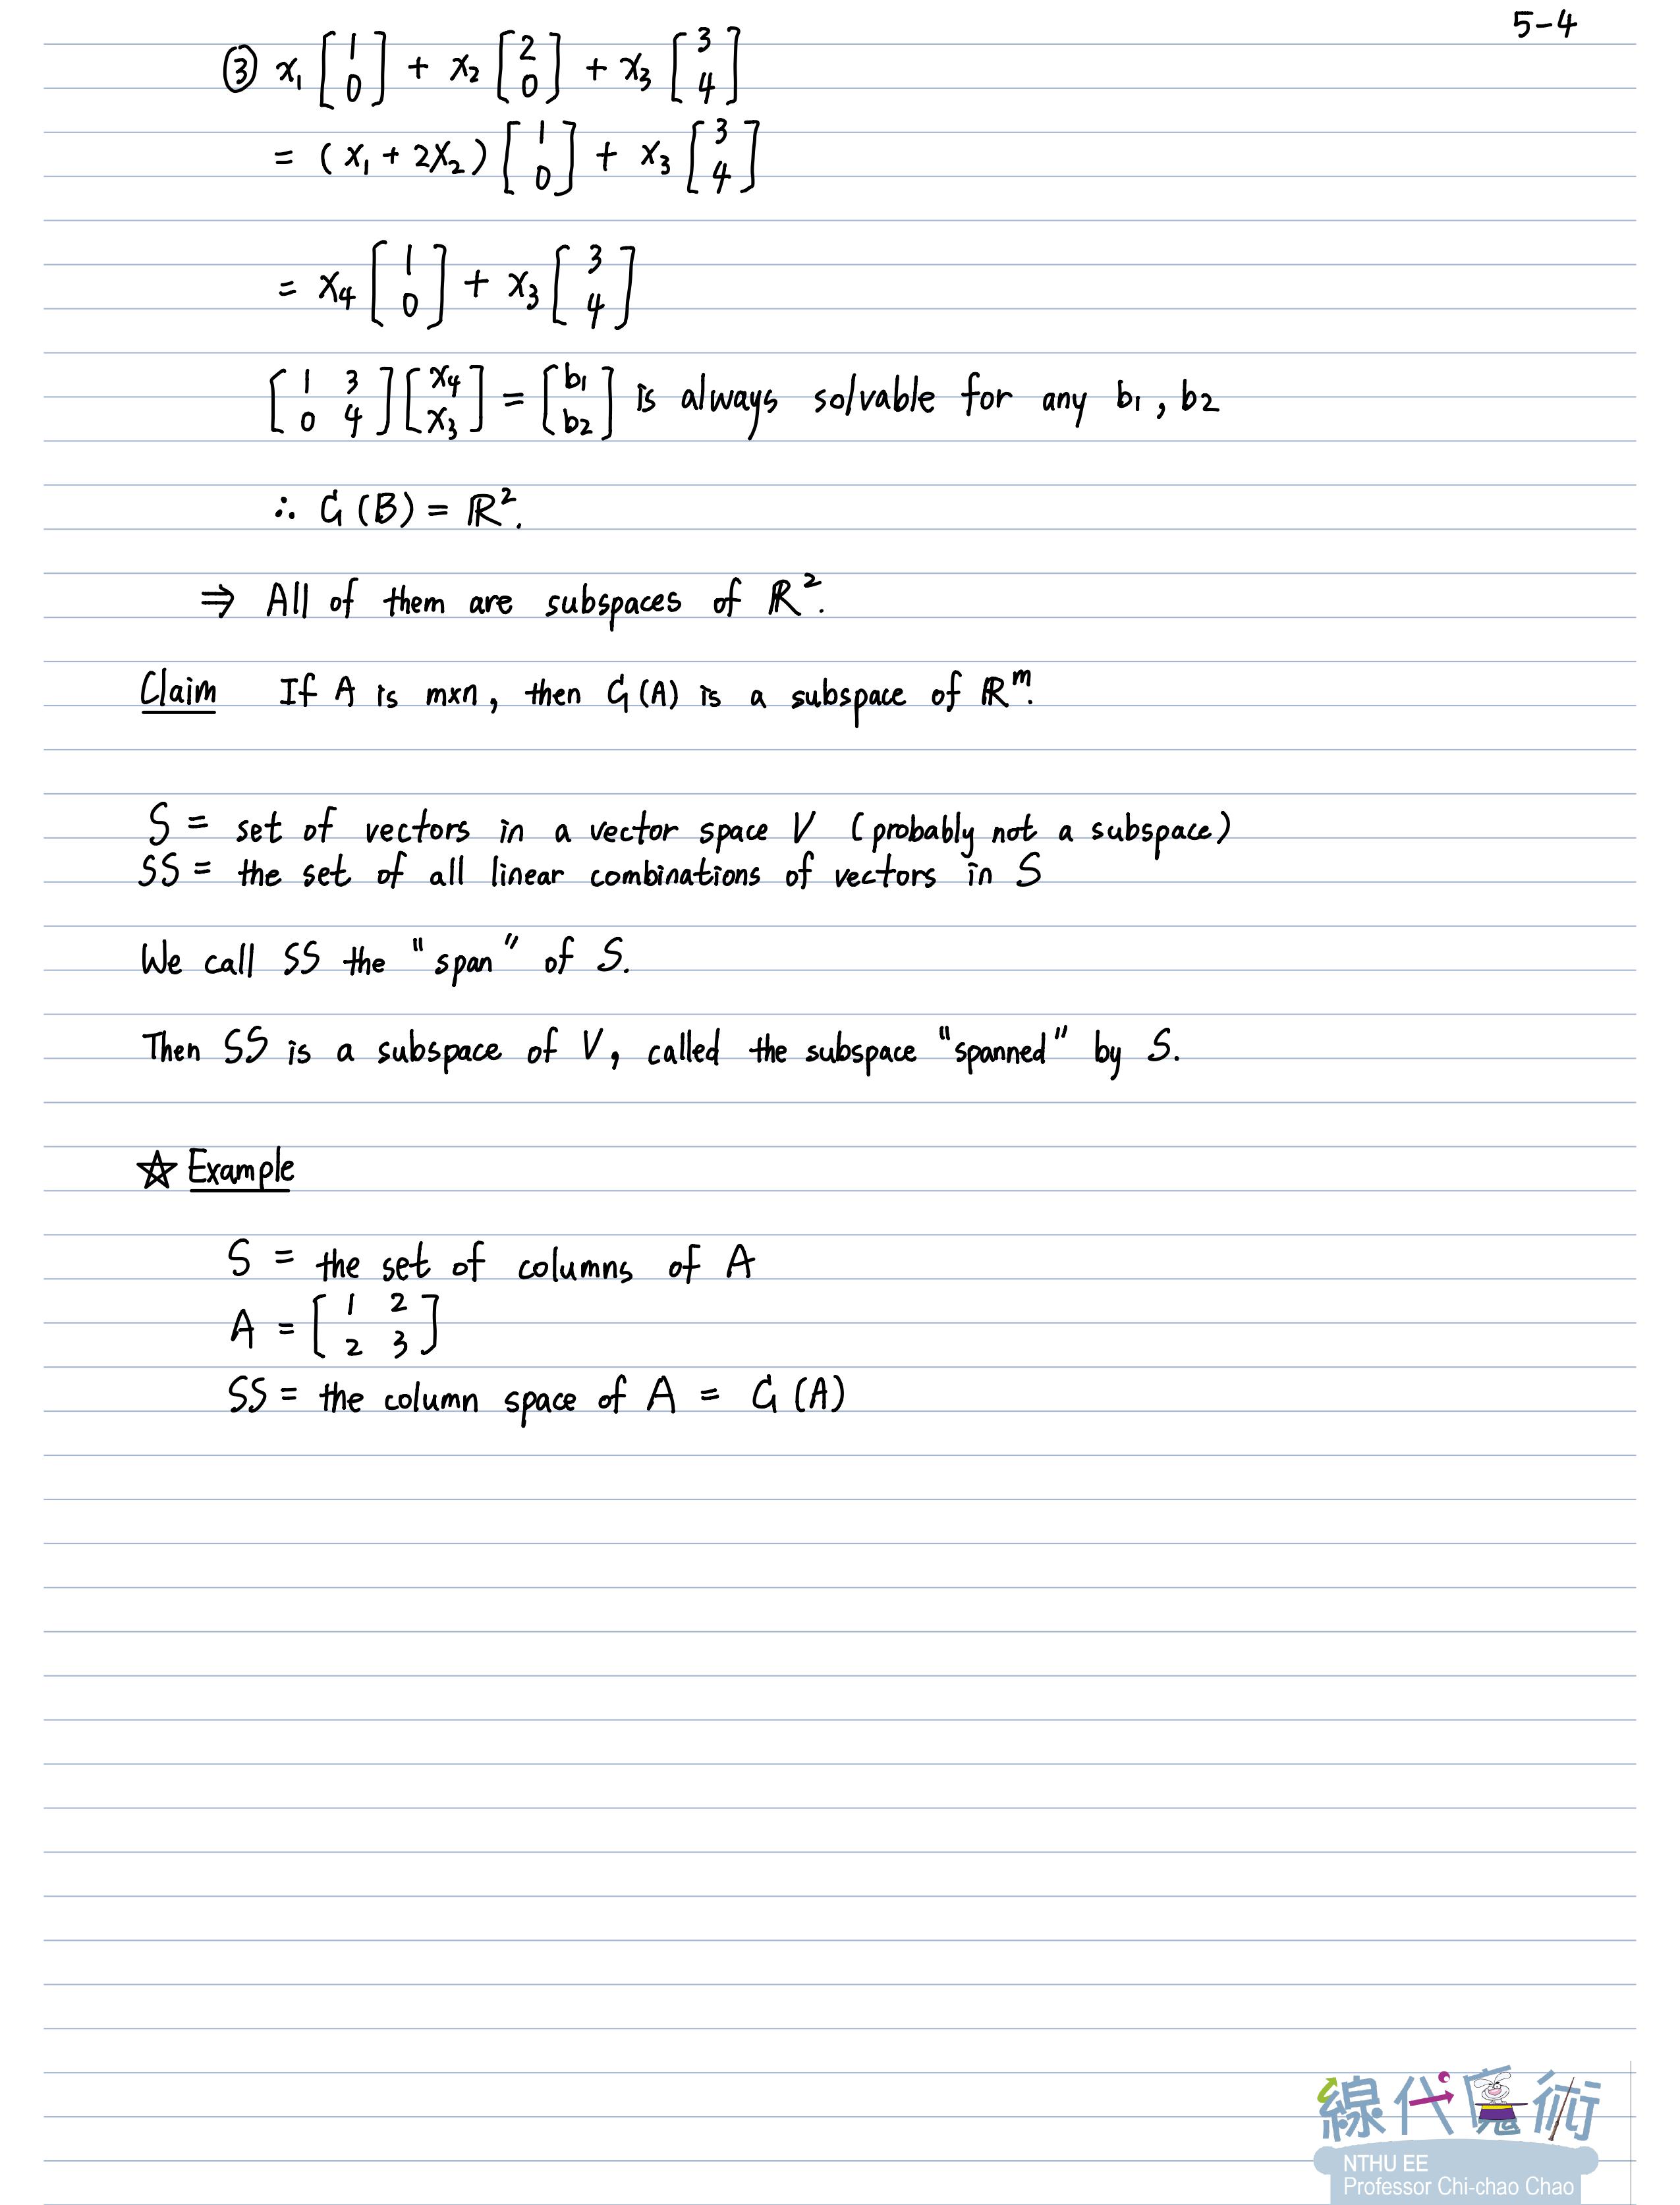 5-4
③ x₁ [1 0] + x₂ [2 0] + x₃ [3 4]
= (x₁ + 2x₂) [1 0] + x₃ [3 4]
= x₄ [1 0] + x₃ [3 4]
[1 3 0 4] [x₄ x₃] = [b₁ b₂] is always solvable for any b₁, b₂
∴ G(B) = ℝ².
⇒ All of them are subspaces of ℝ².
Claim If A is m×n, then G(A) is a subspace of ℝᵐ.
S = set of vectors in a vector space V (probably not a subspace)
SS = the set of all linear combinations of vectors in S
We call SS the "span" of S.
Then SS is a subspace of V, called the subspace "spanned" by S.
☆ Example
S = the set of columns of A
A = [1 2 2 3]
SS = the column space of A = G(A)
線代魔術
NTHU EE
Professor Chi-chao Chao